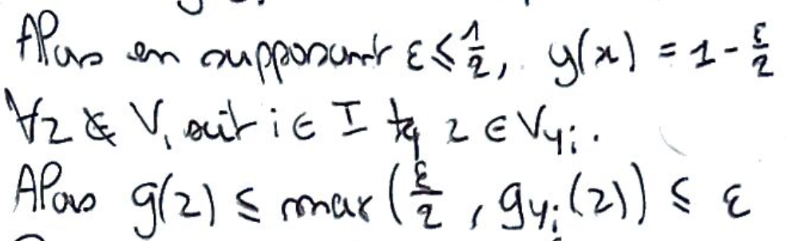 Alors en supposant ε ≤ 1/2, y(x) = 1 - ε/2
∀z ∉ V, soit i ∈ I tq z ∈ V_{y_i}.
Alors g(z) ≤ max(ε/2, g_{y_i}(z)) ≤ ε